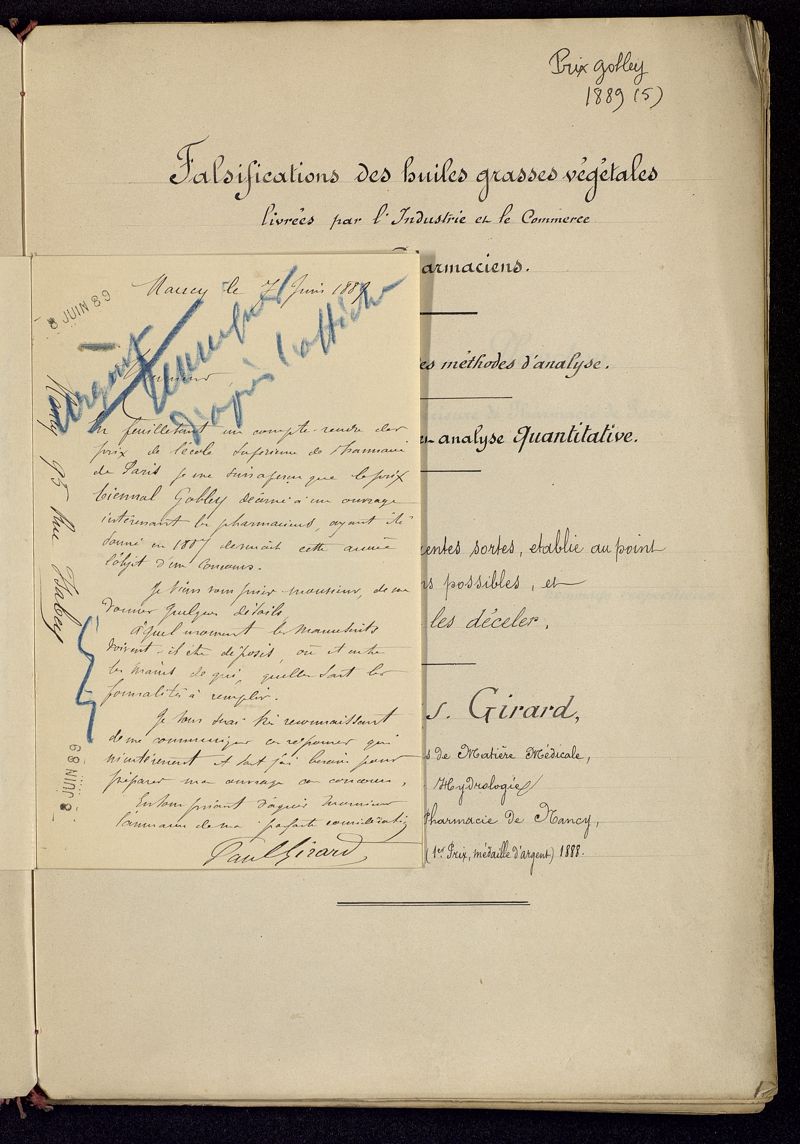 Prix gobley
1889 (5)
Falsifications des huiles grasses végétales
livrées par l'Industrie et le Commerce
armaciens.
es méthodes d'analyse.
analyse Quantitative.
entes sortes, etablie au point
s possibles, et
les déceler,
s. Girard,
s de Matière Médicale,
Hydrologie
Pharmacie de Nancy,
(1er Prix, médaille d'argent) 1888.
8 JUIN 89
Nancy le 7 Juin 1889
Urgent
d'après l'affiche
Monsieur,
En feuilletant un compte-rendu des
prix de l'école supérieure de Pharmacie
de Paris je me suis aperçu que le prix
biennal Gobley décerné à un ouvrage
intéressant les pharmaciens, ayant été
donné en 1887 devenait cette année
l'objet d'un concours.
Je viens vous prier monsieur, de me
donner quelques détails.
à quel moment les manuscrits
doivent-il être déposés, où et entre
les mains de qui, quelles sont les
formalités à remplir.
Je vous serai très reconnaissant
de me communiquer ces réponses qui
m'intéressent et dont j'ai besoin pour
préparer mon ouvrage ce concours.
En vous priant d'agréer Monsieur
l'assurance de ma parfaite considération
Paul Girard
Nancy 95 Rue Isabey
8 JUIN 89